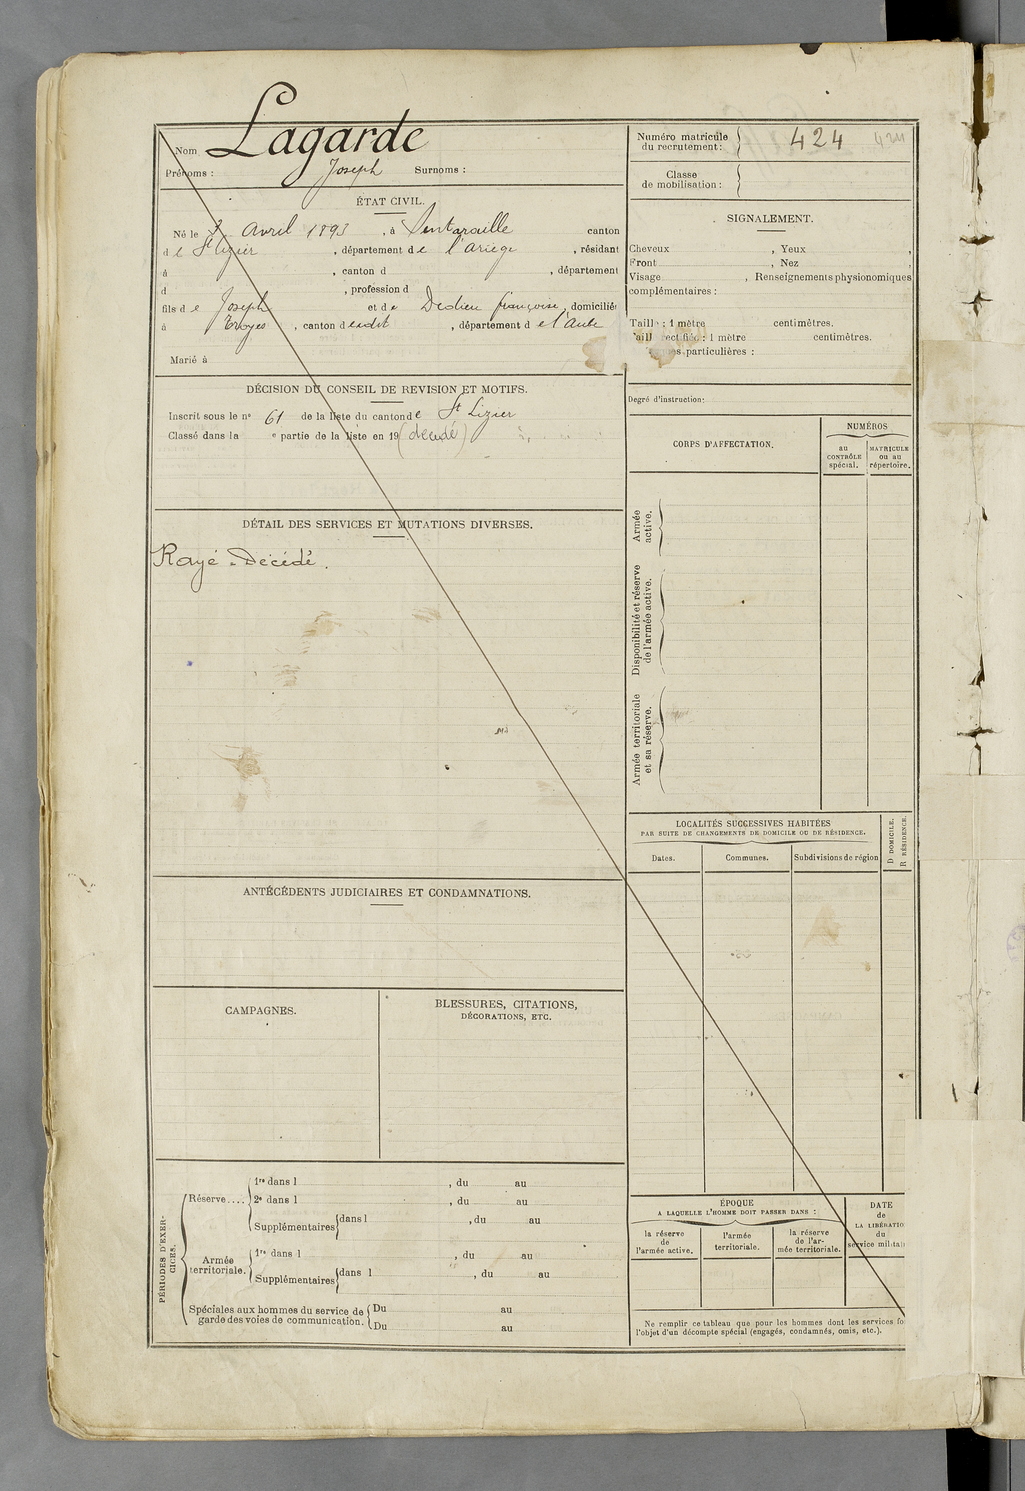 Nom Lagarde
Prénoms : Joseph Surnoms :
ÉTAT CIVIL.
Né le 3 avril 1893, à canton
de St Lizier, département de l'ariège, résidant
à , canton d , département
d , profession d
fils de Joseph et de Dedieu françoise, domiciliés
à Troyes, canton dudit, département de l'Aube
Marié à
DÉCISION DU CONSEIL DE REVISION ET MOTIFS.
Inscrit sous le no 61 de la liste du canton de St Lizier
Classé dans la e partie de la liste en 19 (décédé)
DÉTAIL DES SERVICES ET MUTATIONS DIVERSES.
Rayé - Décédé.
ANTÉCÉDENTS JUDICIAIRES ET CONDAMNATIONS.
CAMPAGNES.
BLESSURES, CITATIONS,
DÉCORATIONS, ETC.
PÉRIODES D'EXER-
CICES.
Réserve.... 1re dans l , du au
2e dans l , du au
Supplémentaires dans l , du au
Armée
territoriale. 1re dans l , du au
Supplémentaires dans l , du au
Spéciales aux hommes du service de
garde des voies de communication. Du au
Du au
Numéro matricule
du recrutement : 424 424
Classe
de mobilisation :
SIGNALEMENT.
Cheveux , Yeux ,
Front , Nez ,
Visage , Renseignements physionomiques
complémentaires :
Taille : 1 mètre centimètres.
Taille rectifiée : 1 mètre centimètres.
particulières :
Degré d'instruction :
CORPS D'AFFECTATION.
NUMÉROS
au
CONTRÔLE
spécial.
MATRICULE
ou au
répertoire.
Armée
active.
Disponibilité et réserve
de l'armée active.
Armée territoriale
et sa réserve.
LOCALITÉS SUCCESSIVES HABITÉES
PAR SUITE DE CHANGEMENTS DE DOMICILE OU DE RÉSIDENCE.
D DOMICILE.
R RÉSIDENCE.
Dates. Communes. Subdivisions de région
ÉPOQUE
A LAQUELLE L'HOMME DOIT PASSER DANS :
la réserve
de
l'armée active.
l'armée
territoriale.
la réserve
de l'ar-
mée territoriale.
DATE
de
LA LIBÉRATIO
du
service militai
Ne remplir ce tableau que pour les hommes dont les services fo
l'objet d'un décompte spécial (engagés, condamnés, omis, etc.).